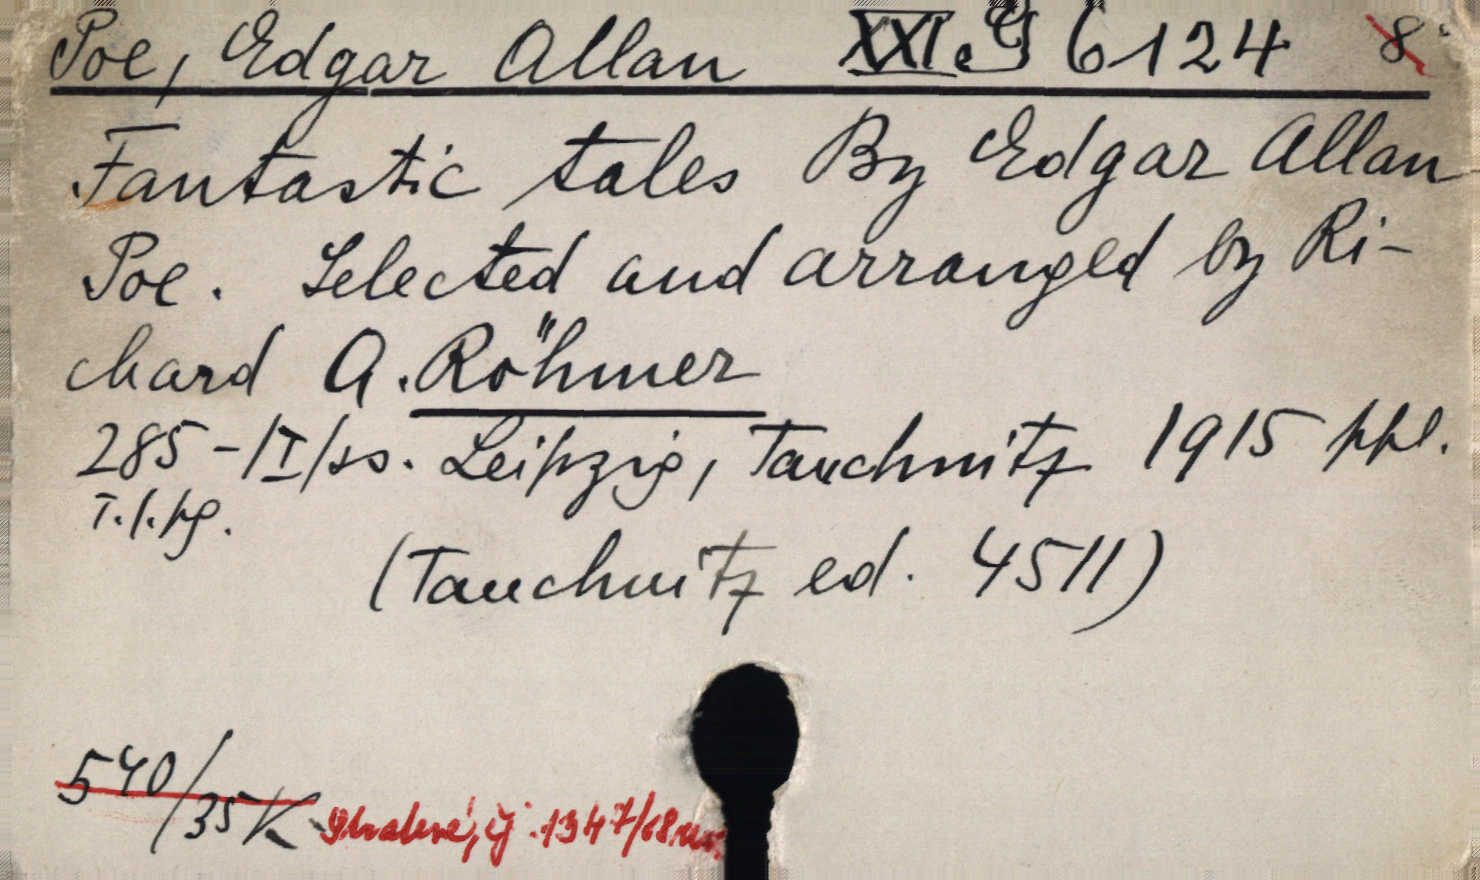 Poe, Edgar Allan XXI.G 6124 8°
Fantastic tales By Edgar Allan
Poe. Selected and arranged by Ri-
chard A. Röhmer
285-/I/ss. Leipzig, Tauchnitz 1915 ppl.
T.l.pg.
(Tauchnitz ed. 4511)
540/35 K č. 1347/68